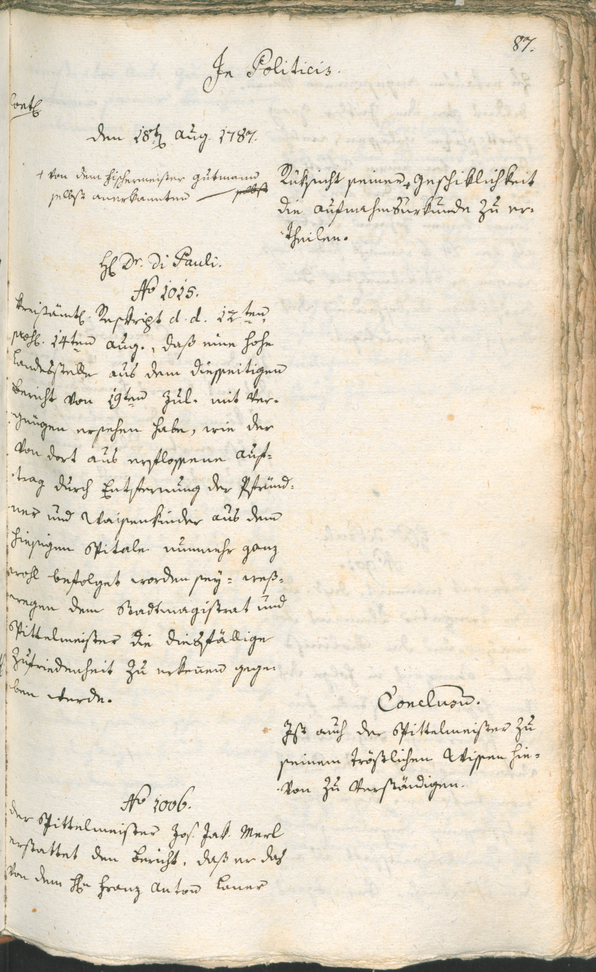 87.
In Politicis.
den 18t Aug. 1787.
+ von dem Fischermeister Gutmann
selbst anerkannten
Rüksicht seiner + Geschiklichkeit
die Aufnahmsurkunde zu er-
theilen.
H. Dr. Di Pauli.
No 1015.
Kreisämtl. Reskript d. d. 12ten
14ten Aug., daß eine hohe
Landesstelle aus dem diesseitigen
Bericht von 19ten Jul. mit Ver-
gnügen ersehen habe, wie der
von dort aus erflossene Auf-
trag durch Entfernung der Pfründ-
ner und Waisenkinder aus dem
hiesigen Spitale nunmehr ganz
wohl befolget worden sey: weß-
wegen dem Stadtmagistrat und
Spittelmeister die diesfällige
Zufriedenheit zu erkennen gege-
ben werde.
Conclusum.
Ist auch der Spittelmeister zu
seinem tröstlichen Wissen hie-
von zu verständigen.
No 1006.
Der Spittelmeister Jos. Jak. Merl
erstattet den Bericht, daß er das
von dem Hn Franz Anton